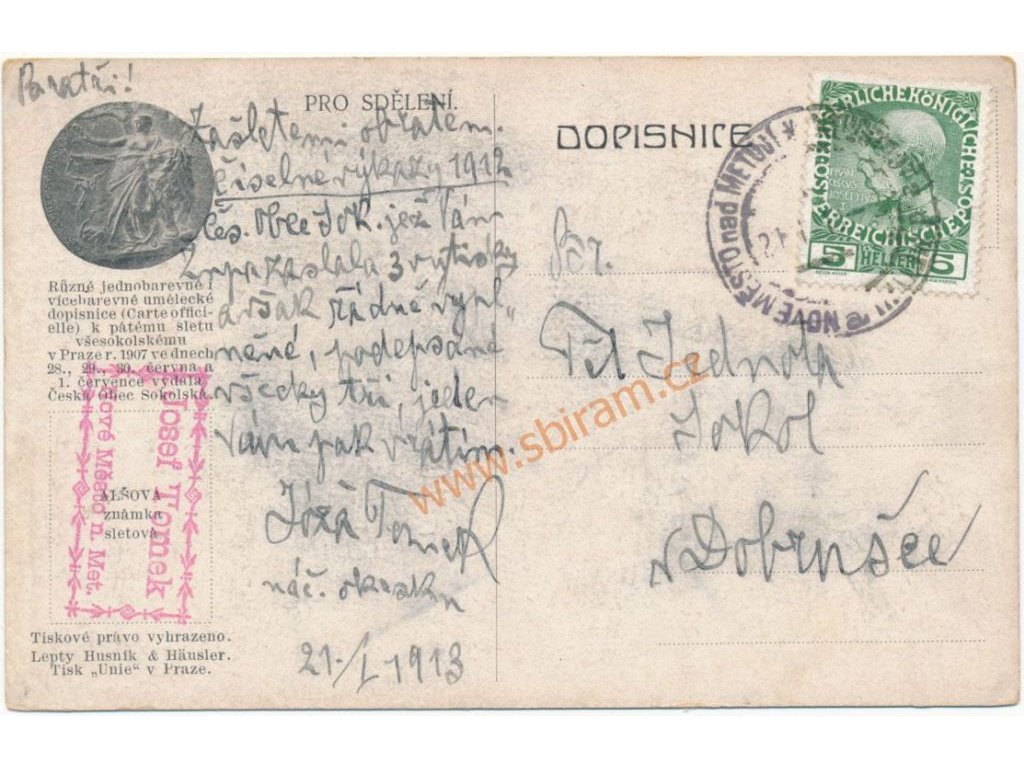 Bratři!
PRO SDĚLENÍ.
Zašletemi obratem
číselné výkazy 1912
čes. Obce Sok. jež Vám
župa zaslala 3 výtisky
avšak řádně vypl„
něné, podepsané
všecky tři, jeden
Vám pak vrátím.
Jóža Tomek
náč. okrsku
21./I. 1913
Různé jednobarevné i
vícebarevné umělecké
dopisnice (Carte offici-
elle) k pátému sletu
všesokolskému
v Praze r. 1907 ve dnech
28., 29., 30. června a
1. července vydala
Česká Obec Sokolská.
ALŠOVA
známka
sletová
Josef Tomek
Nové Město n. Met.
Tiskové právo vyhrazeno.
Lepty Husník & Häusler.
Tisk „Unie" v Praze.
DOPISNICE
Těl. Jednota
Sokol
v Dobrušce
KAISERLICHE KÖNIGLICHE
ÖSTERREICHISCHE POST
5 HELLER 5
NOVÉ MĚSTO nad METUJÍ
www.sbiram.cz